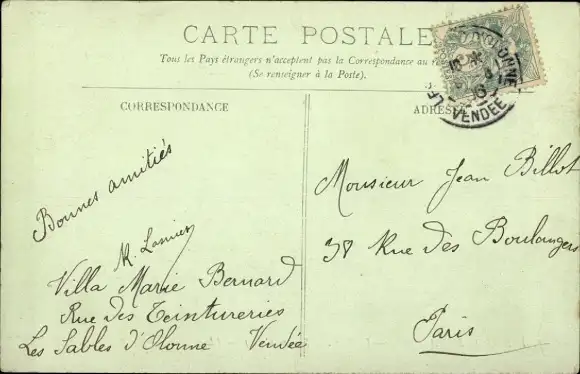 CARTE POSTALE
Tous les Pays étrangers n'acceptent pas la Correspondance au
(Se renseigner à la Poste).
CORRESPONDANCE
ADRESSE
D'OLONNE
VENDÉE
Bonnes amitiés
Villa Marie Bernard
Rue des Teintureries
Les Sables d'Olonne Vendée
Monsieur Jean Billot
38 Rue des Boulangers
Paris